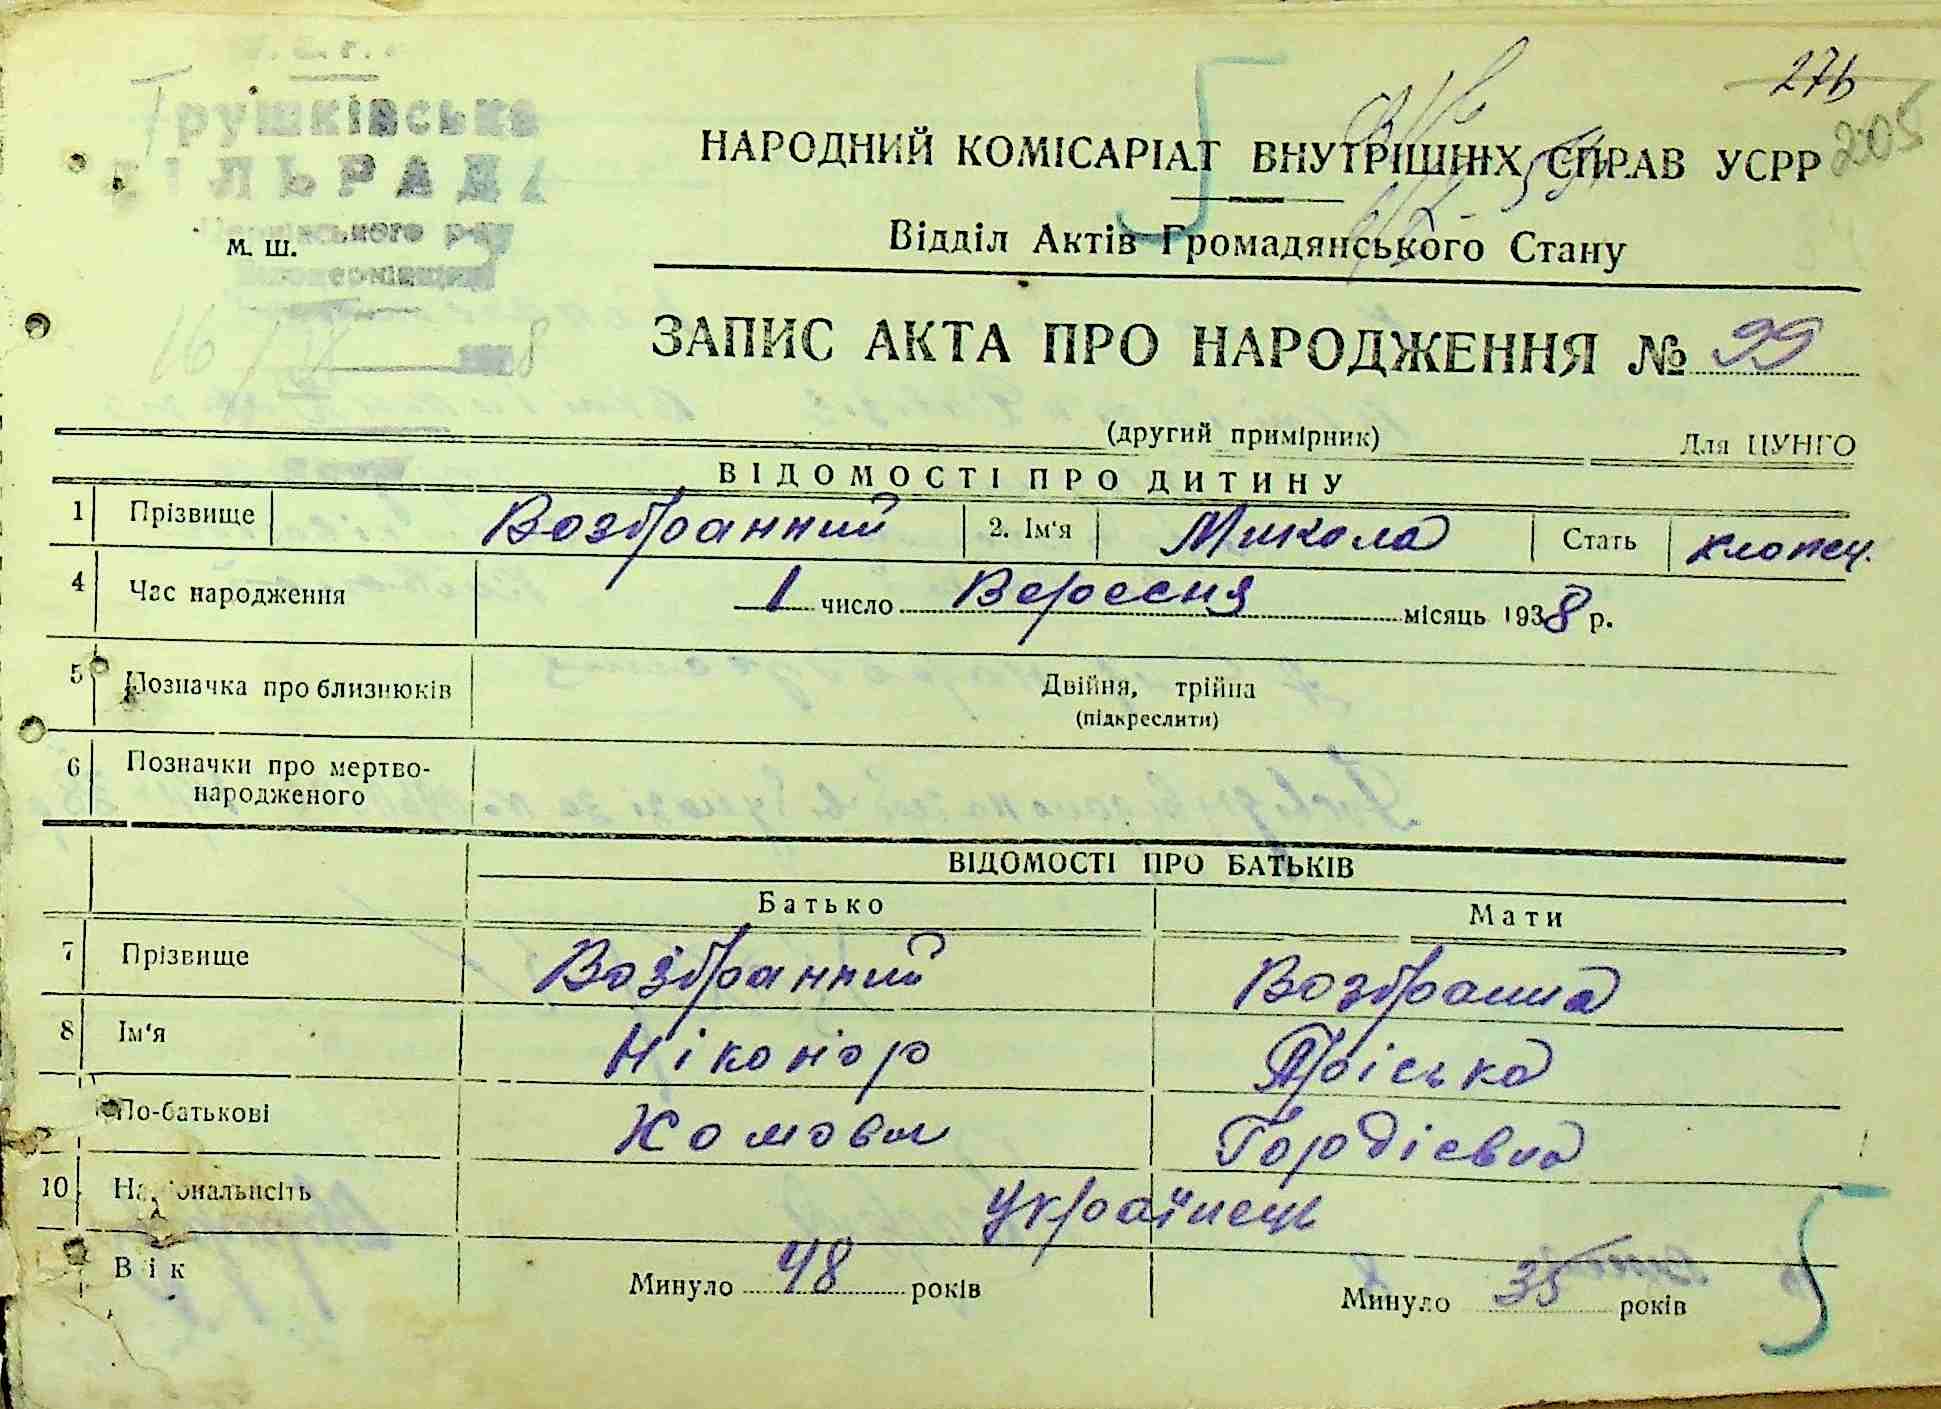 276
205
Трушківська
СІЛЬРАДА
р-ну
М. Ш.
НАРОДНИЙ КОМІСАРІАТ ВНУТРІШНІХ СПРАВ УСРР
Відділ Актів Громадянського Стану
16
ЗАПИС АКТА ПРО НАРОДЖЕННЯ № 99
(другий примірник) Для ЦУНГО
ВІДОМОСТІ ПРО ДИТИНУ
1 Прізвище Возбранний 2. Ім'я Микола Стать хлопец.
4 Час народження 1 число Вересня місяць 1938 р.
5 Позначка про близнюків Двійня, трійна
(підкреслити)
6 Позначки про мертво-
народженого
ВІДОМОСТІ ПРО БАТЬКІВ
Батько Мати
7 Прізвище Возбранний Возбранна
8 Ім'я Ніконор Пріська
По-батькові Хомович Гордієвна
10 Національність Українець
Вік Минуло 48 років Минуло 35 років